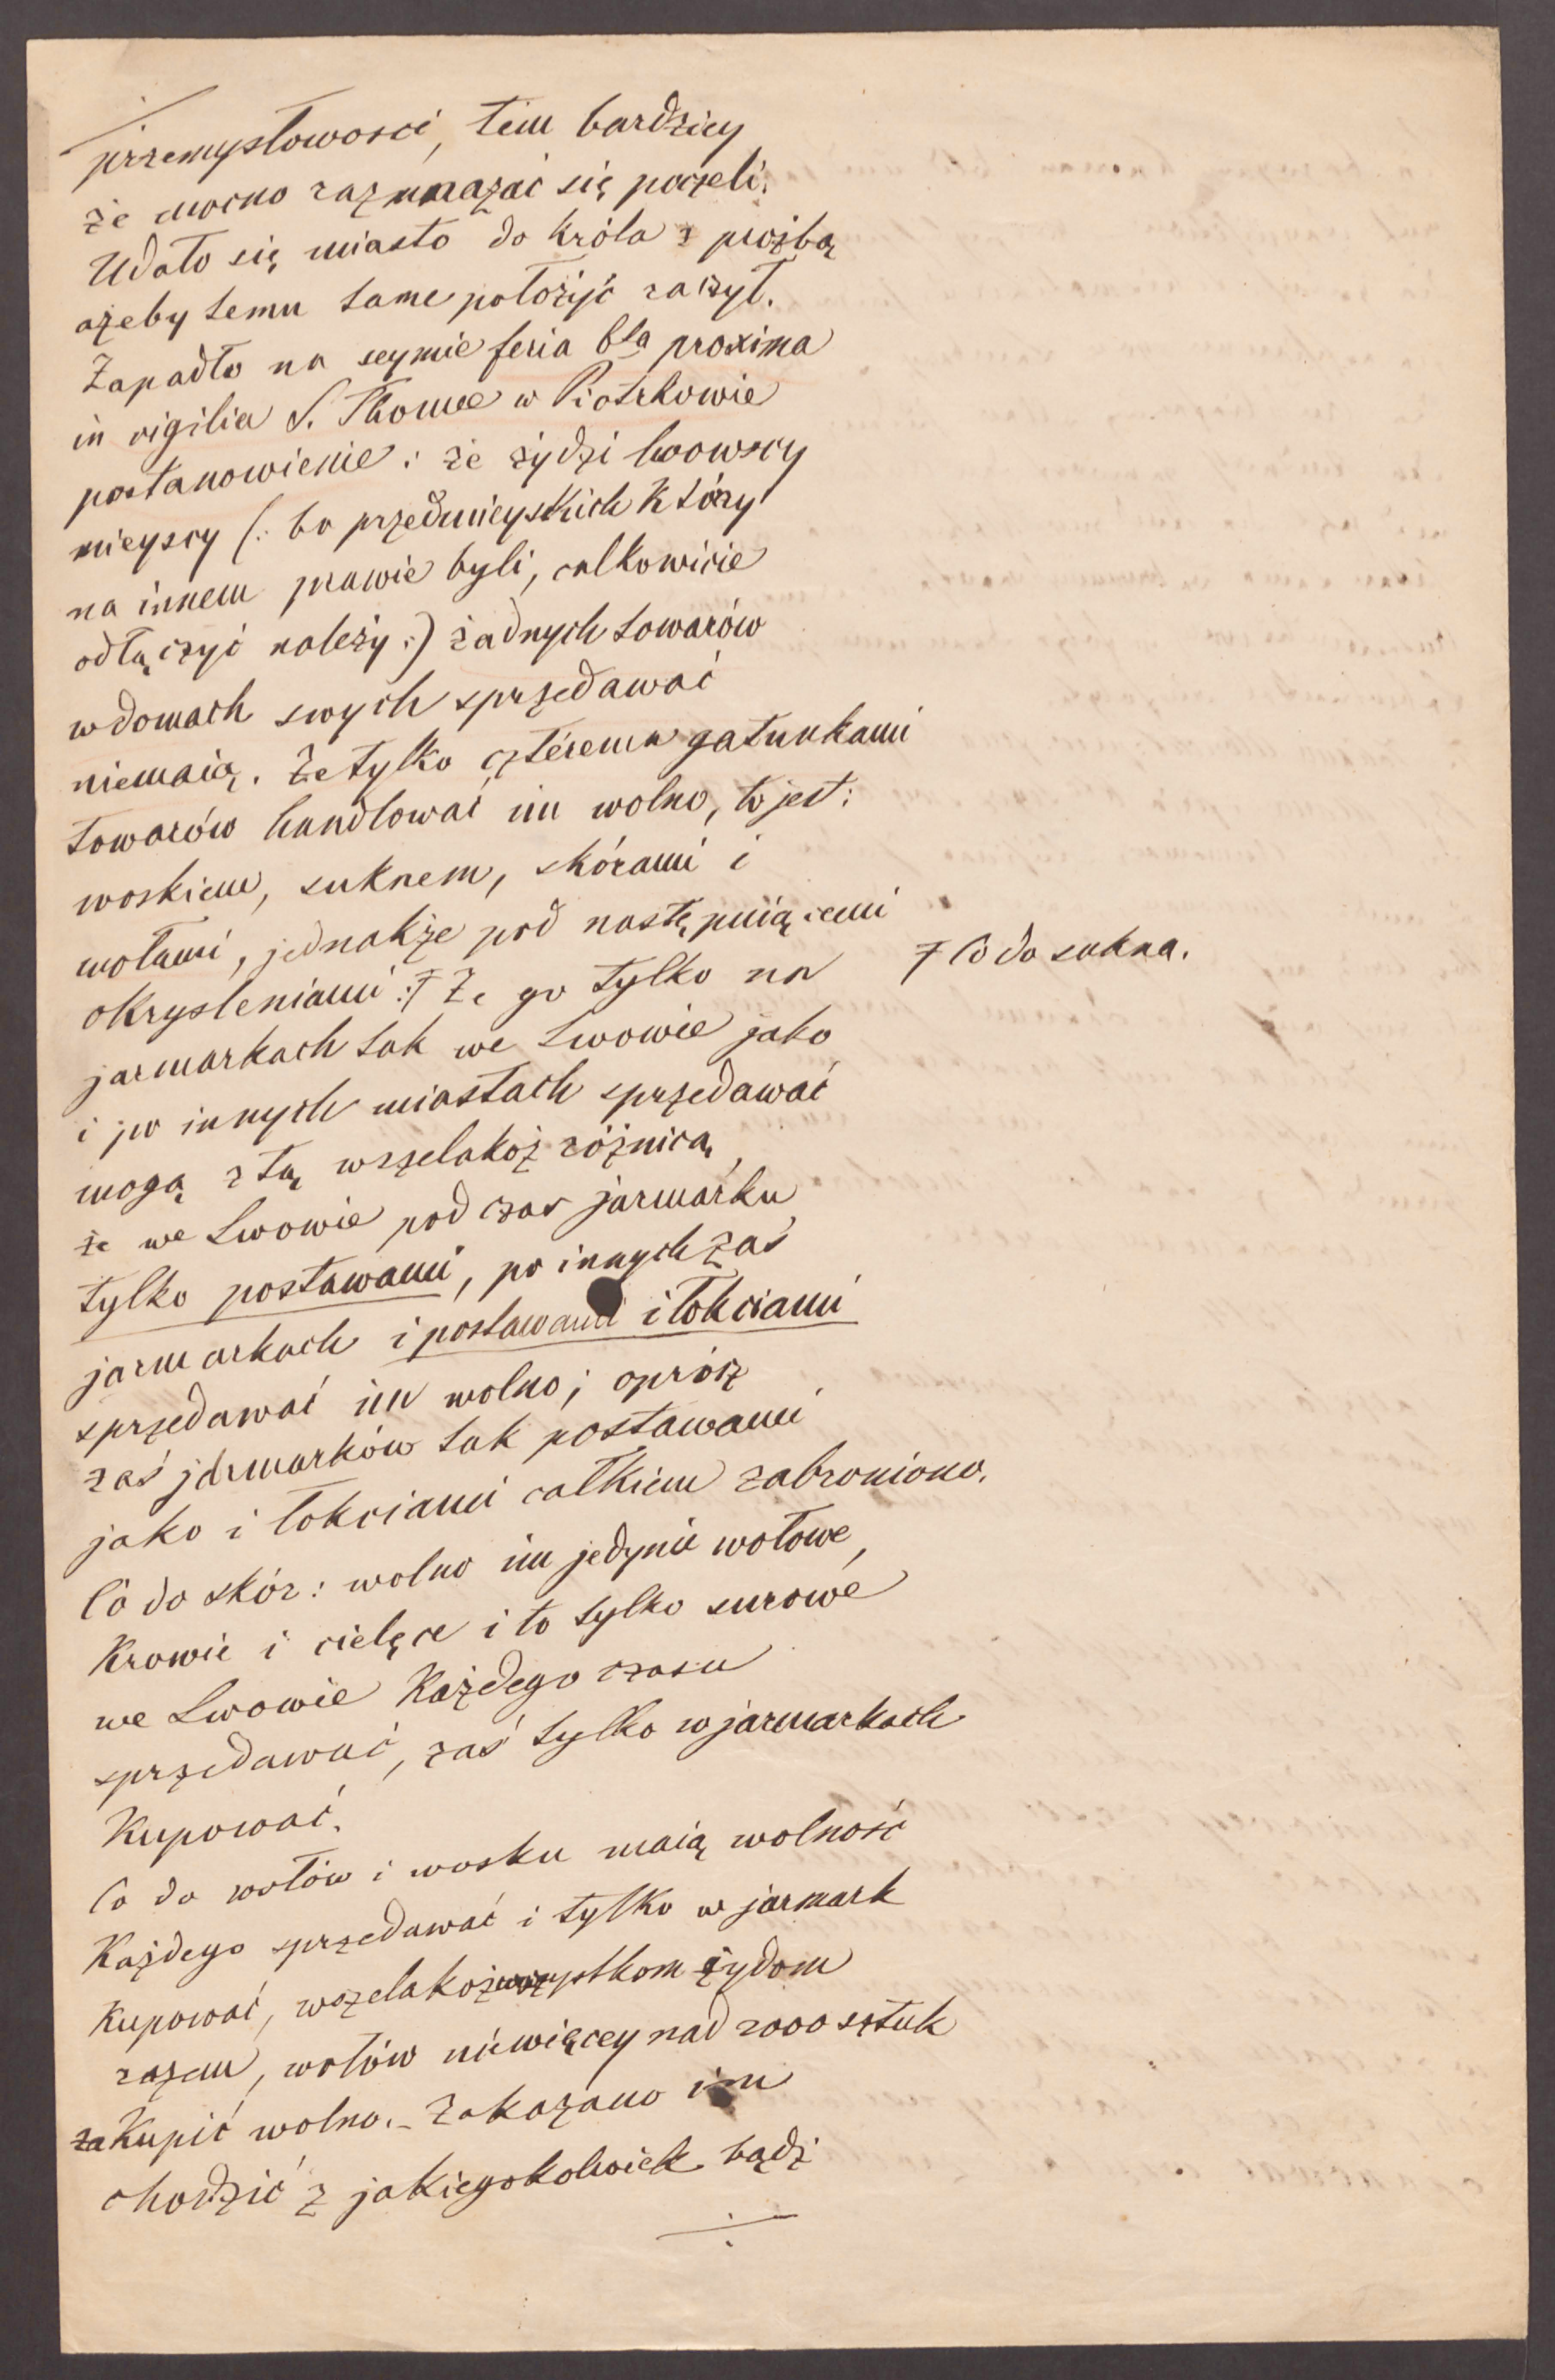 przemysłowości, tem bardziey
że mocno rozmnażać się poczęli.
Udało się miasto do króla z proźbą
ażeby temu tamę położyć raczył.
Zapadło na seymie feria 6ta proxima
in vigilia S. Thomae w Piotrkowie
postanowienie: że żydzi lwowscy
mieyscy (: bo przedmieyskich którzy
na innem prawie byli, całkowicie
odłączyć należy :) żadnych towarów
w domach swych sprzedawać
niemaią. Że tylko czterema gatunkami
towarów handlować im wolno, to jest:
woskiem, suknem, skórami i
wołami, jednakże pod następuiącemi
okryśleniami: ꝉ Że go tylko na
ꝉ Co do sukna.
jarmarkach tak we Lwowie jako
i po innych miastach sprzedawać
mogą z tą wszelakoż różnicą,
że we Lwowie podczas jarmarku
tylko postawami, po innych zaś
jarmarkach i postawami i łokciami
sprzedawać im wolno; oprócz
zaś jarmarków tak postawami
jako i łokciami całkiem zabroniono.
Co do skór: wolno im jedynie wołowe,
krowie i cielęce i to tylko surowe
we Lwowie każdego czasu
sprzedawać, zaś tylko w jarmarkach
kupować.
Co do wołów i wosku maią wolność
każdego sprzedawać i tylko w jarmark
kupować, wszelakoż wszystkom żydom
razem, wołów niewięcey nad 2000 sztuk
zakupić wolno. – Zakazano im
chodzić z jakiegokolwiek bądź